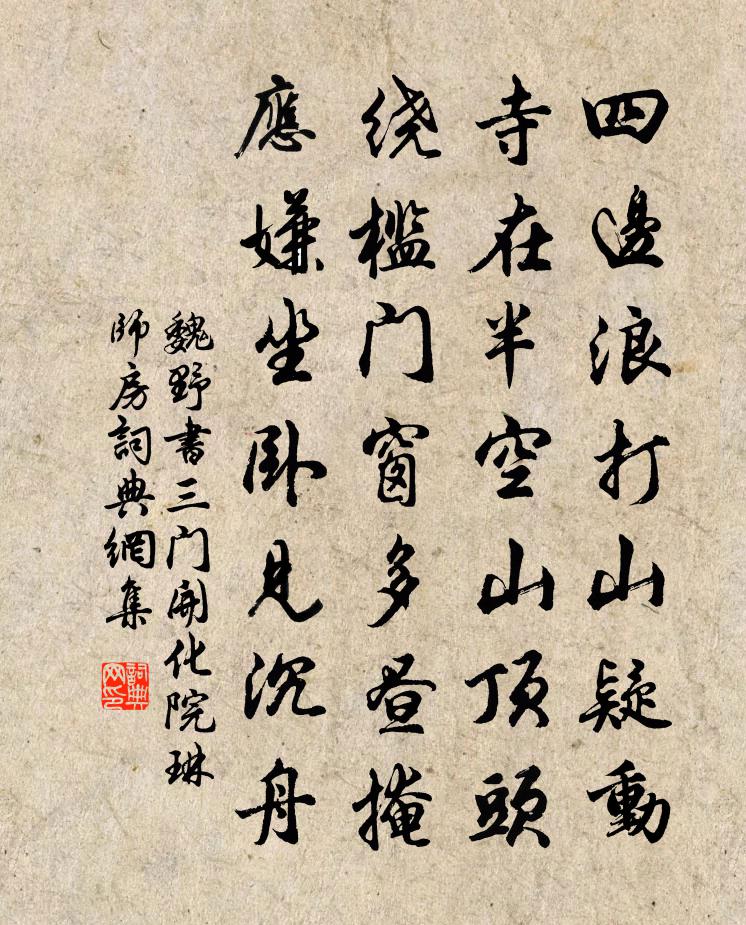 四邊浪打山疑動
寺在半空山頂頭
绕檻门窗多昼掩
應嫌坐卧見沉舟
魏野書三门開化院琳
師房詞典網集
詞典网印